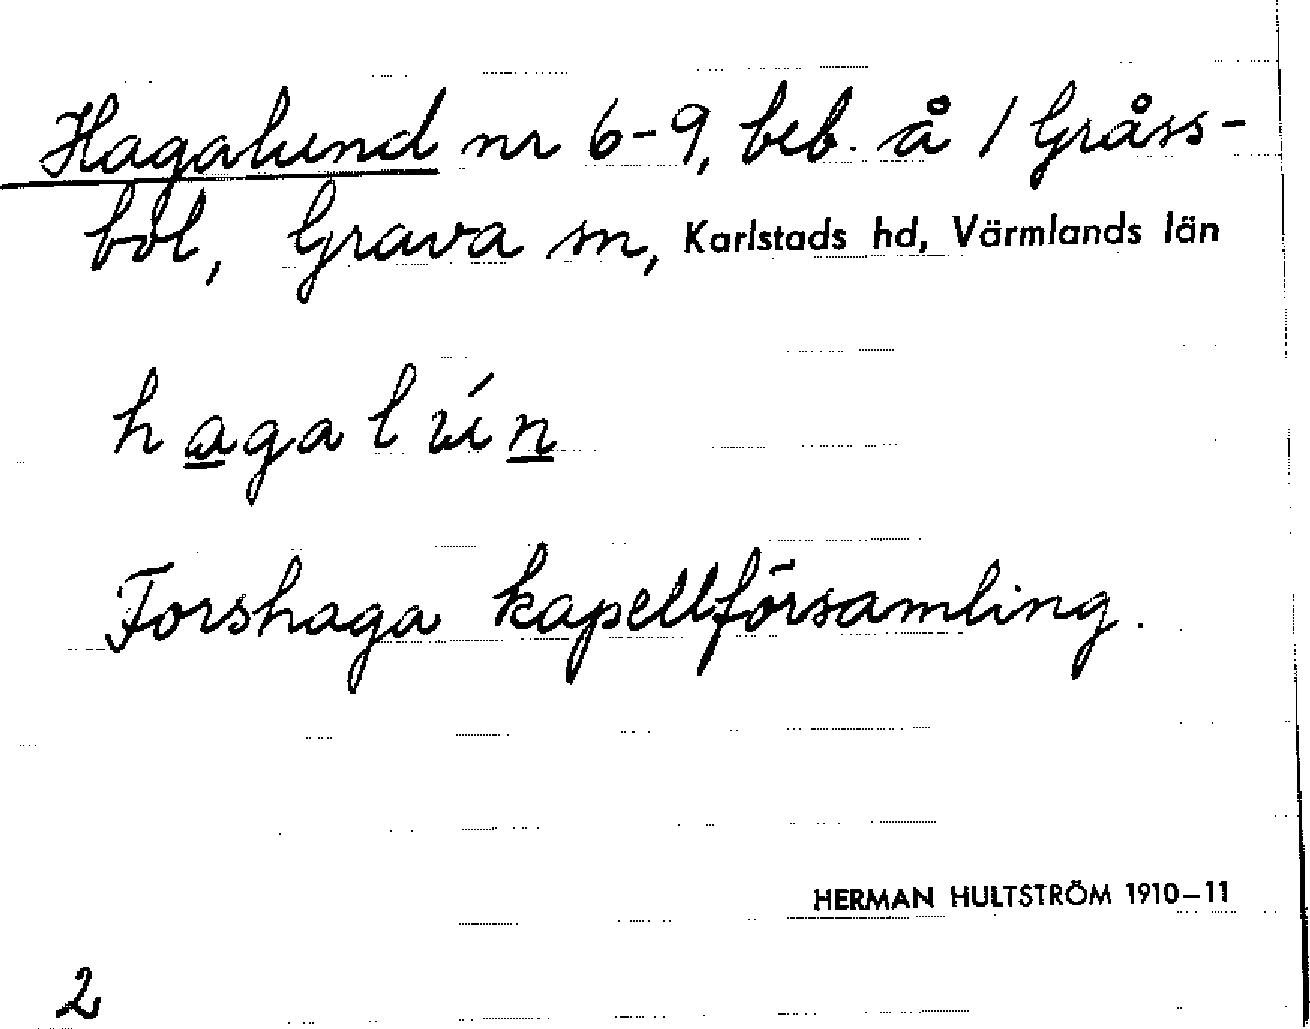 Hagalund nr 6-9, beb. å 1 Gråss-
bol, Grava sn, Karlstads hd, Värmlands län
hagalún
Forshaga kapellförsamling.
HERMAN HULTSTRÖM 1910–11
2